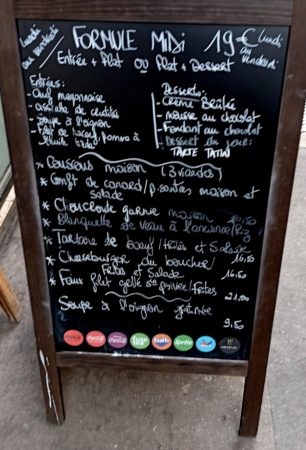 lundi au vendredi
FORMULE MIDI 19€ lundi au vendredi
Entrée + Plat ou Plat + Dessert
Entrées:
- Oeuf mayonnaise
- assiette de crudités
- Soupe à l'oignon
- Filet de hareng/pomme à
Desserts:
- Crème Brûlée
- mousse au chocolat
- Fondant au chocolat
- Dessert du jour:
TARTE TATIN
* Couscous maison (3 viandes)
* Confit de canard/p. sautées maison et Salade
* Choucroute garnie maison
* Blanquette de veau à l'ancienne/Riz
* Tartare de boeuf/Frites et Salade
* Cheeseburger du boucher/ 16,50
Frites et Salade 16,50
* Faux filet grillé sc poivre/frites
21,00
Soupe à l'oignon gratinée
9,50